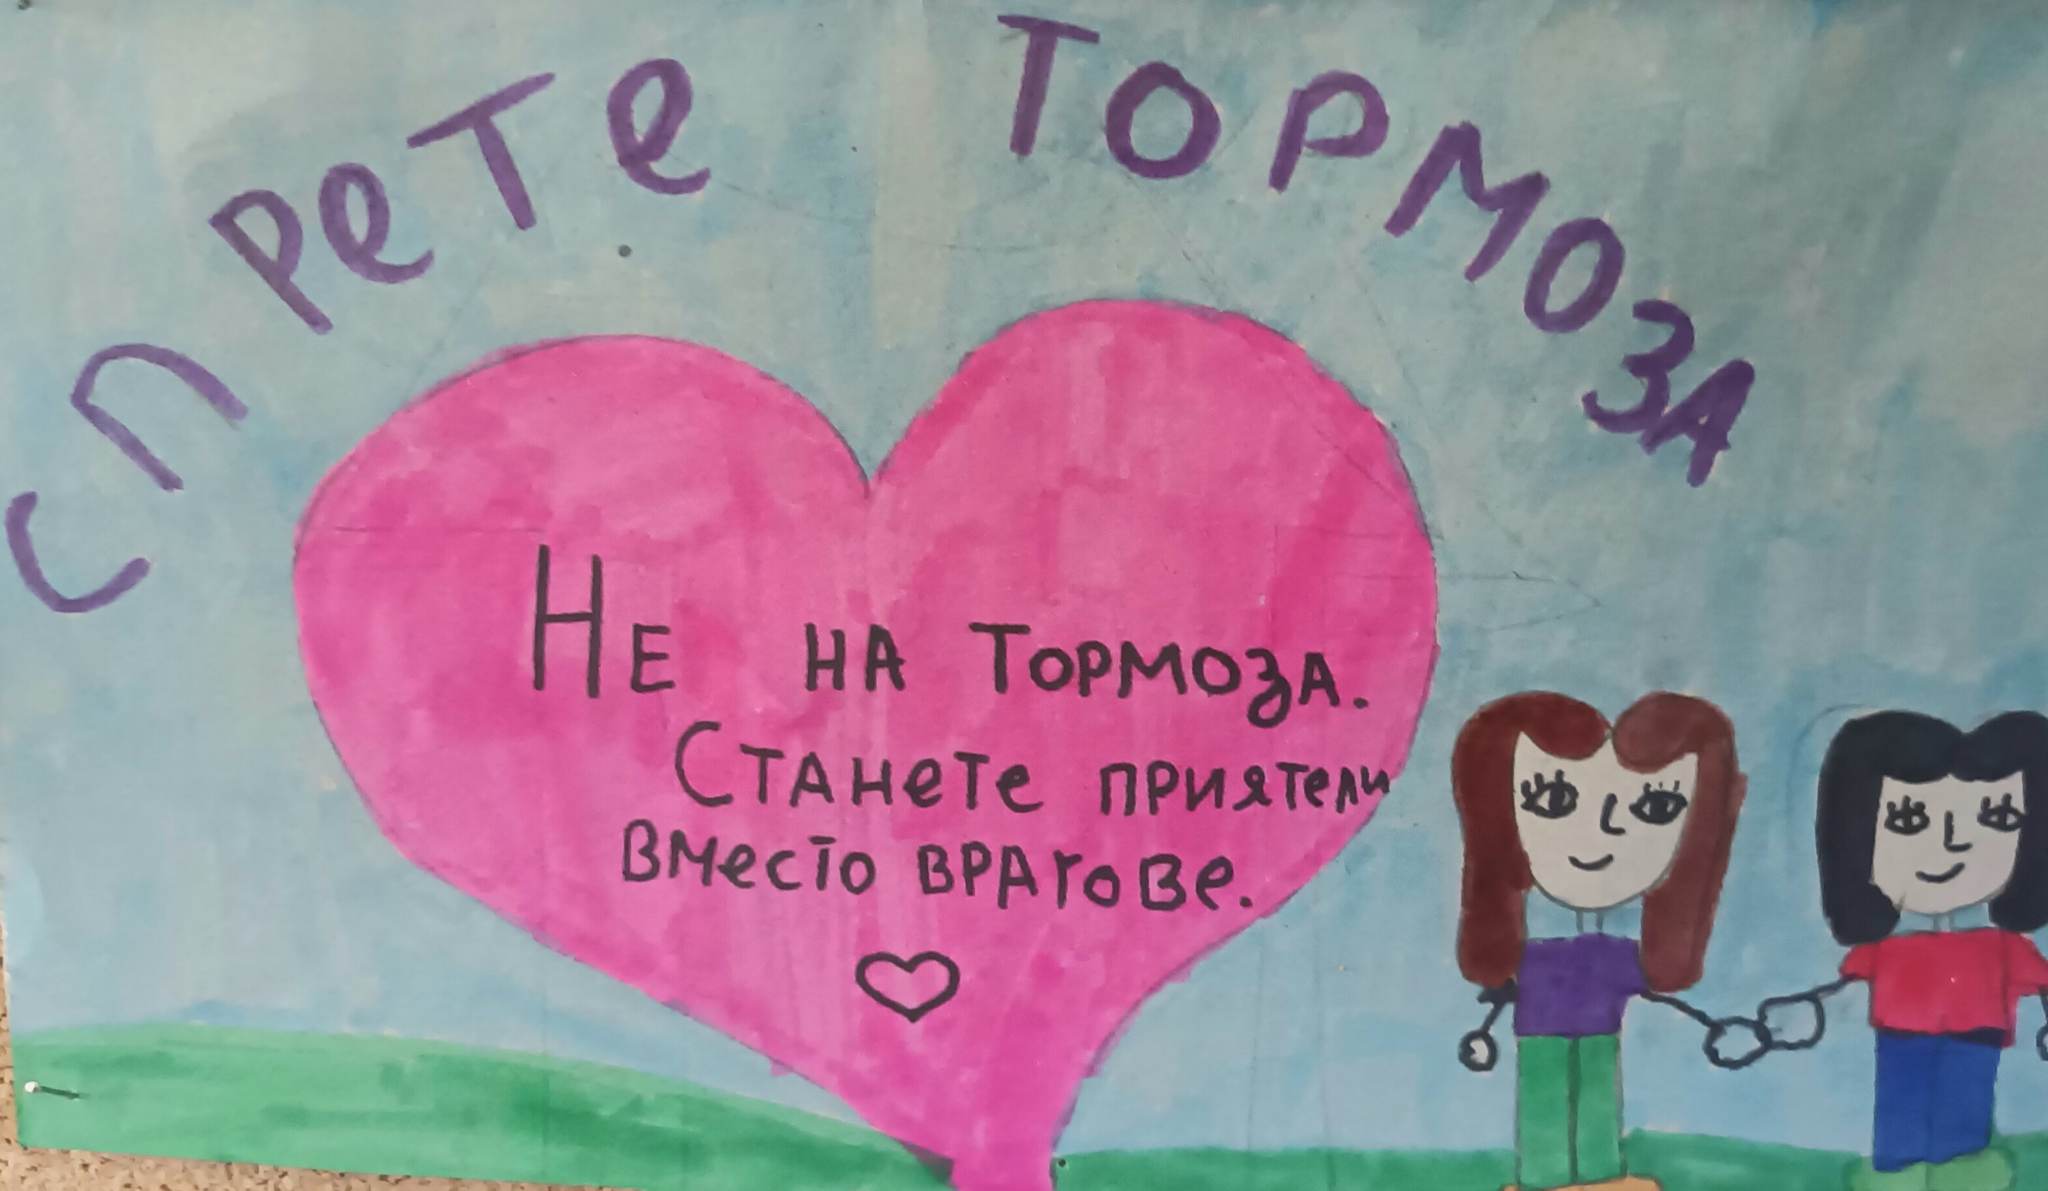 СПРеТе ТОРМОЗА
НЕ НА ТОРМОЗА.
СТАНеТе ПРИЯТели
ВМесТо ВРАГОВе.